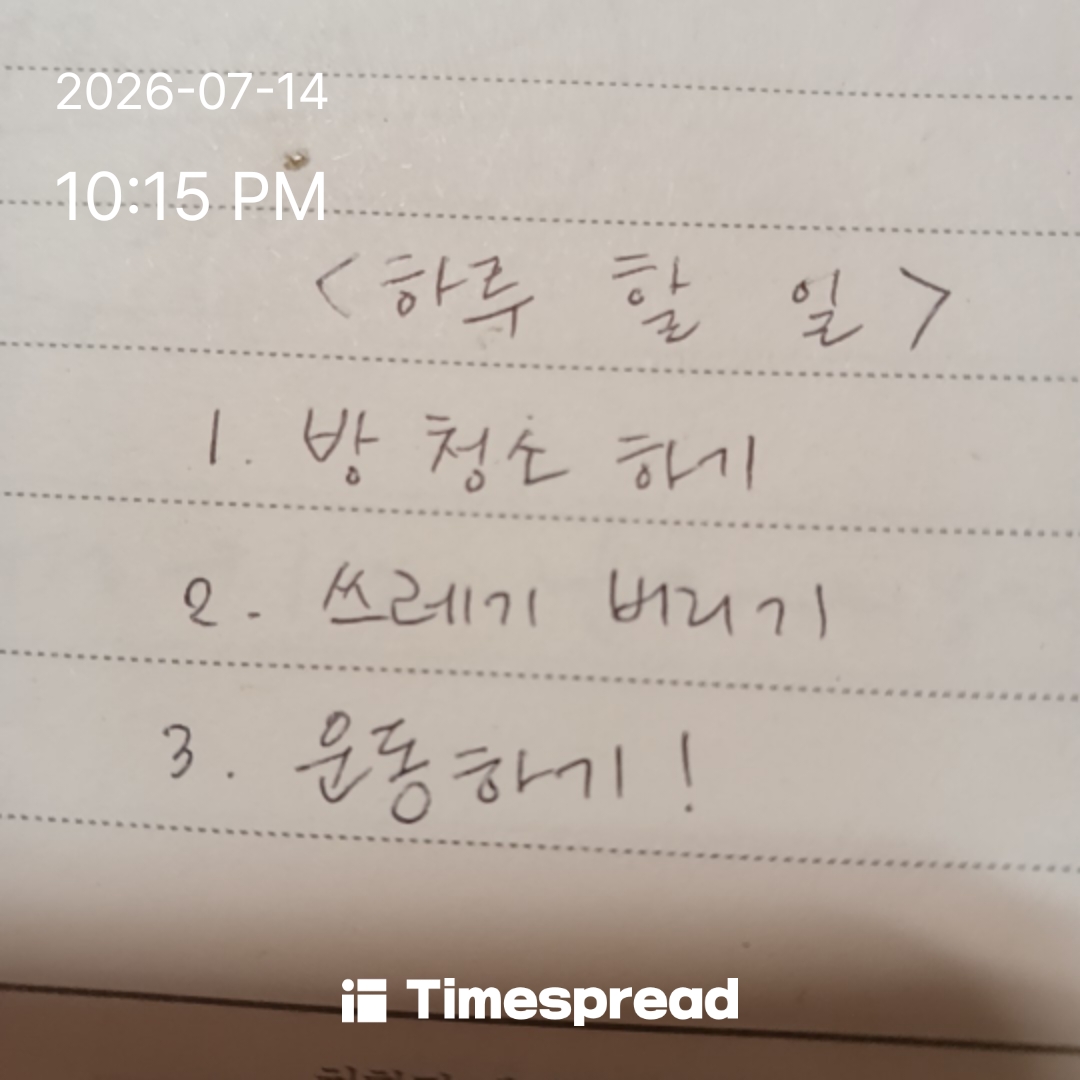 2026-07-14
10:15 PM
<하루 할 일>
1. 방 청소 하기
2. 쓰레기 버리기
3. 운동하기!
Timespread